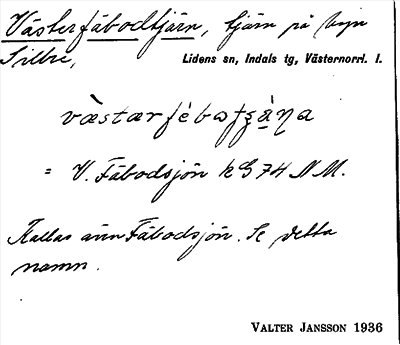 Västerfäbodtjärn, tjärn på byn
Silbre,
Lidens sn, Indals tg, Västernorrl. l.
= V. Fäbodsjön kG 74 NM.
Kallas även Fäbodsjön. Se detta
namn.
VALTER JANSSON 1936